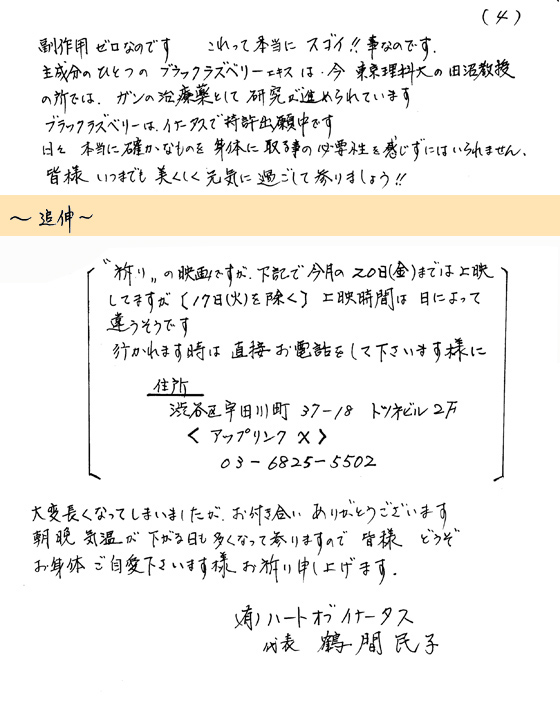 (4)
副作用ゼロなのです これって本当に スゴイ!!事なのです.
主成分のひとつの ブラックラズベリーエキスは、今 東京理科大の田沼教授
の所では、ガンの治療薬として研究が進められています
ブラックラズベリーは、イナータスで特許出願中です
日々 本当に確かなものを 身体に取る事の必要性を感じずにはいられません、
皆様 いつまでも美しく元気に過ごして参りましょう!!
〜追伸〜
〝祈り〟の映画ですが、下記で今月の20日(金)までは上映
してますが〔17日(火)を除く〕上映時間は日によって
違うそうです
行かれます時は 直接お電話をして下さいます様に
住所
渋谷区宇田川町 37-18 トツネビル2F
<アップリンクX>
03-6825-5502
大変長くなってしまいましたが、お付き合い ありがとうございます
朝晩 気温が 下がる日も多くなって参りますので 皆様 どうぞ
お身体ご自愛下さいます様お祈り申し上げます.
(有)ハートオブイナータス
代表 鶴間民子